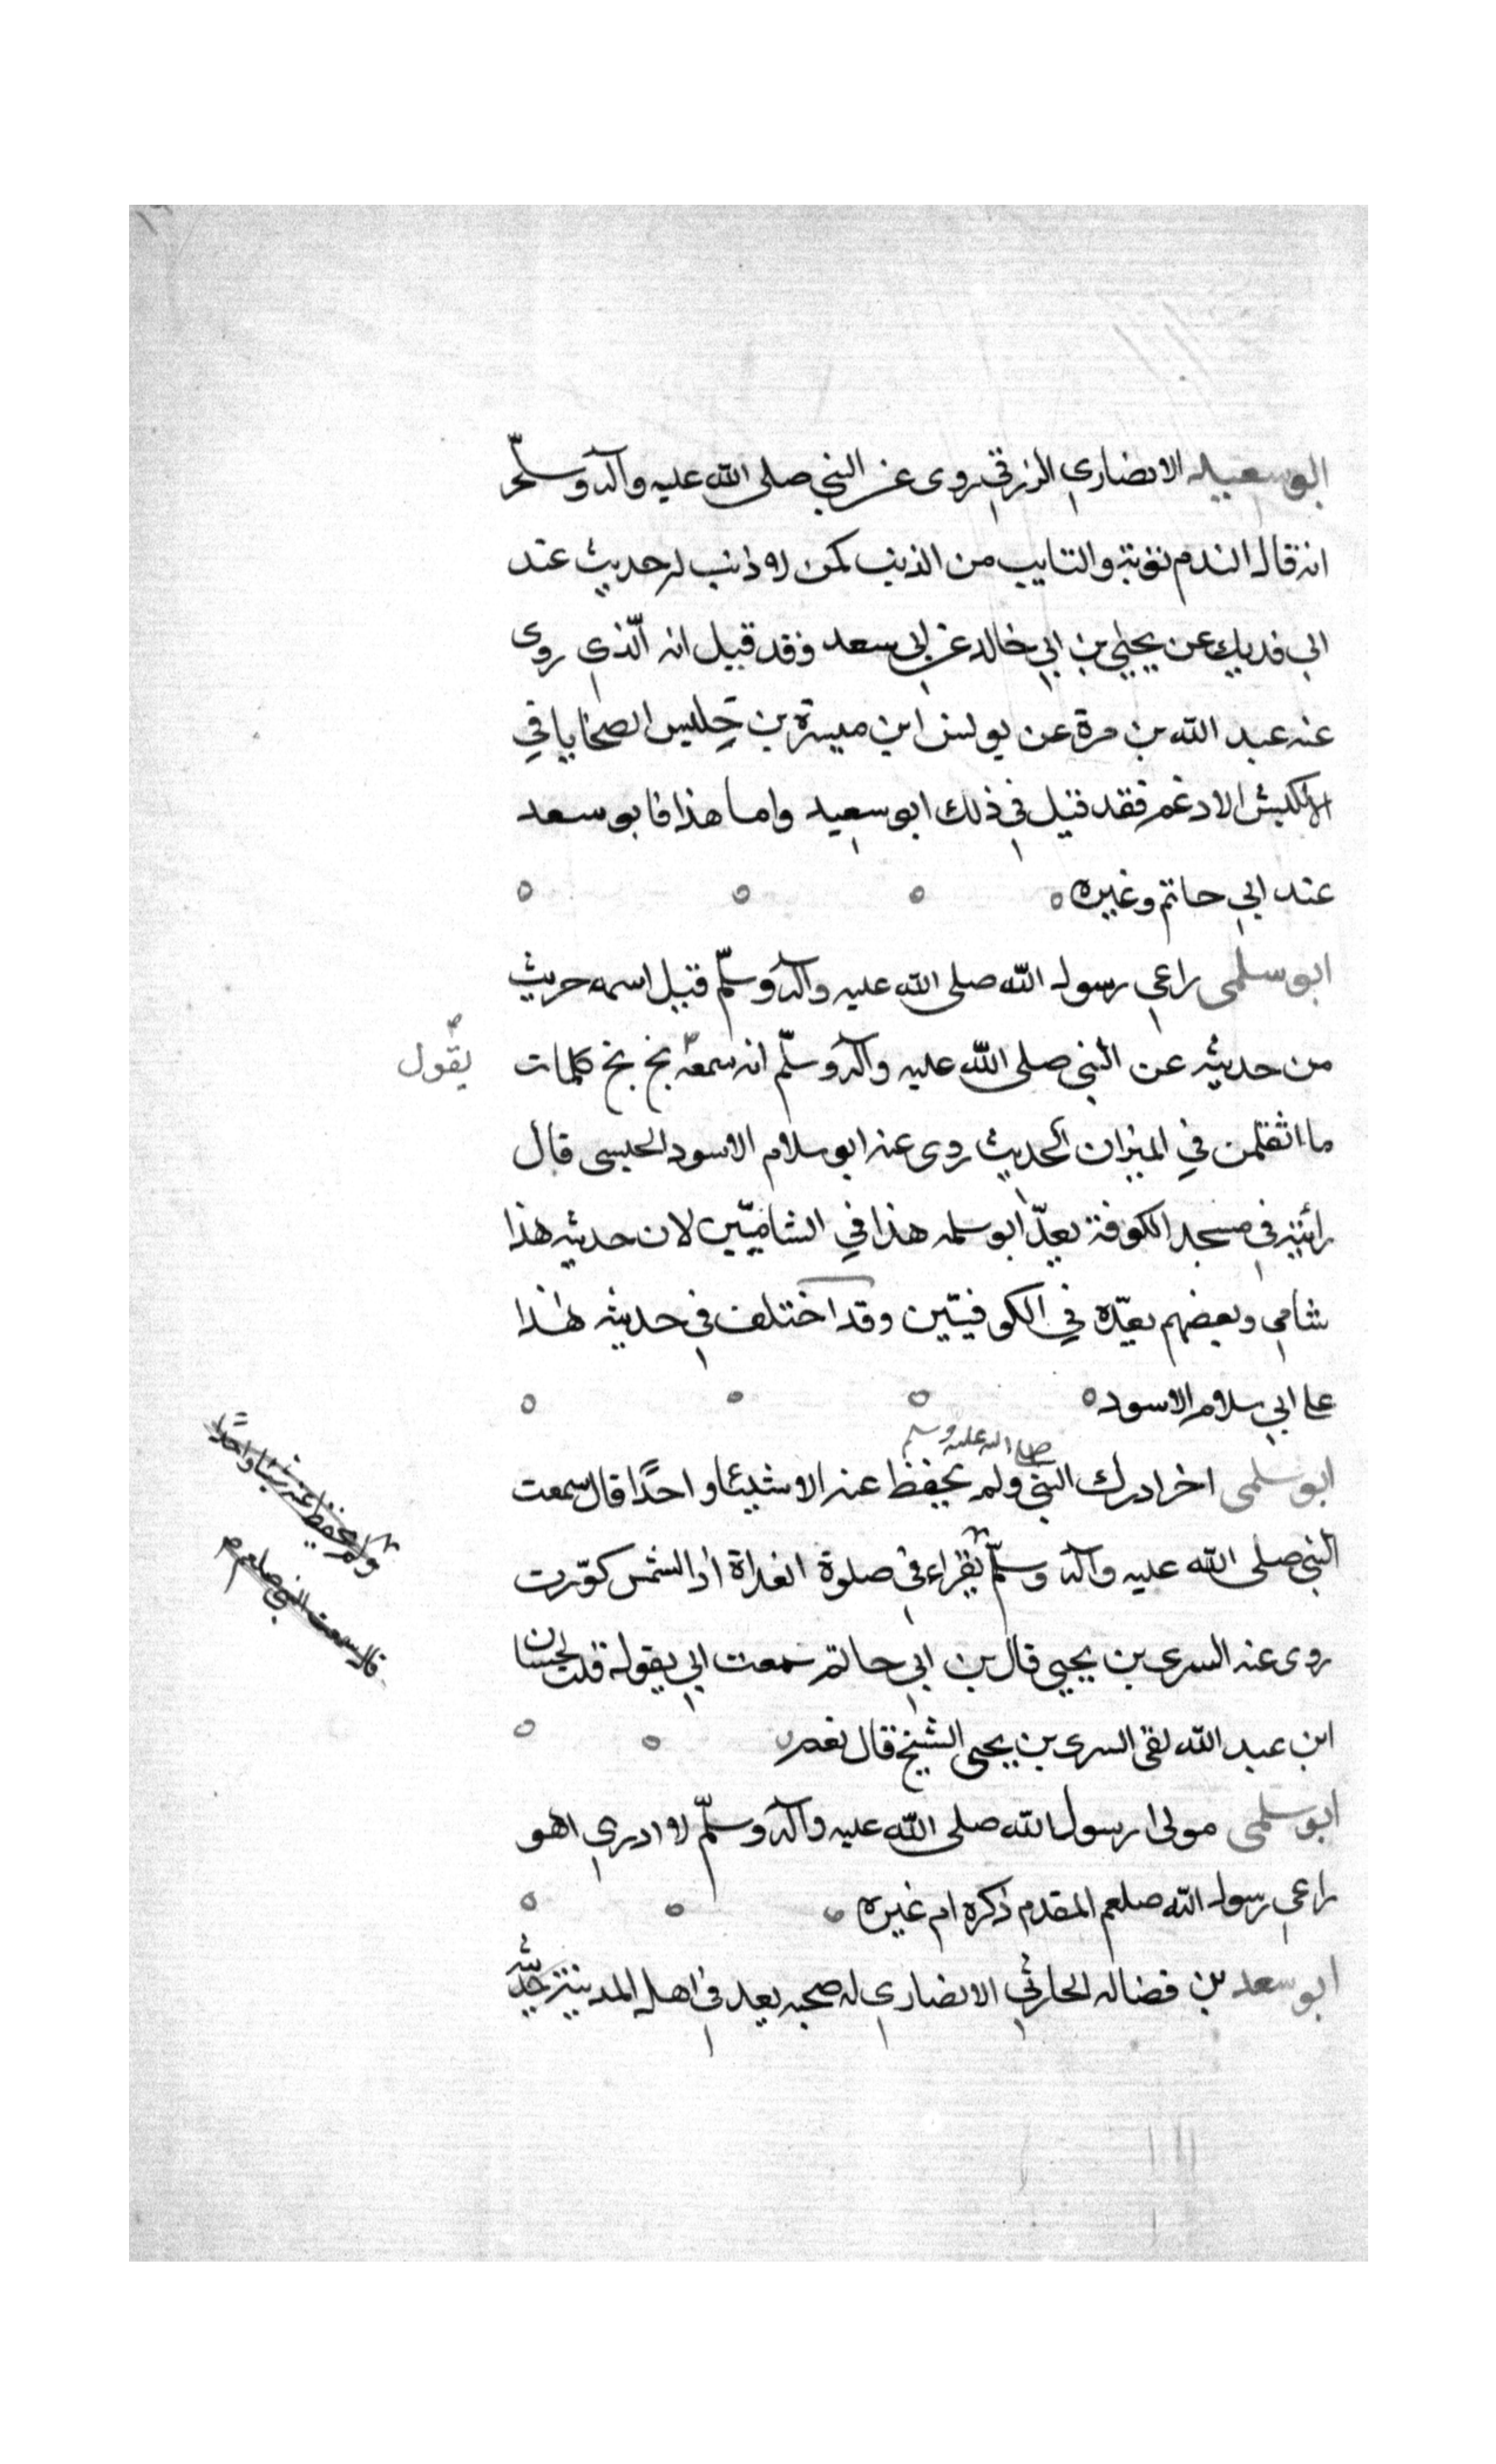 ابو سعيد الانصاري الزرقي روى عن النبي صلى الله عليه وآله وسلم
انه قال الندم توبة والتايب من الذنب كمن لا ذنب له حديثه عند
ابي فديك عن يحيى بن ابي خالد عن ابي سعد وقد قيل انه الذي روى
عنه عبد الله بن مرة عن يونس ابن ميسرة بن حلبس الضحايا في
الكبش الادغم فقد قيل في ذلك ابو سعيد واما هذا فابو سعد
عند ابي حاتم وغيره
ابو سلمى راعي رسول الله صلى الله عليه وآله وسلم قيل اسمه حريث
من حديثه عن النبي صلى الله عليه وآله وسلم انه سمعه بخ بخ كلمات
يقول
ما اثقلهن في الميزان الحديث روى عنه ابو سلام الاسود الحبسى قال
رأيته في مسجد الكوفة يعدّ ابو سلمه هذا في الشاميّين لان حديثه هذا
شامي وبعضهم يعدّه في الكوفيّين وقد اختلف في حديثه هذا
على ابي سلام الاسود
ابو سلمى اخر ادرك النبي صلى الله عليه وسلم ولم يحفظ عنه الا شيئا واحدًا قال سمعت
النبي صلى الله عليه وآله وسلّم يقراء في صلوة الغداة اذا الشمس كوّرت
روى عنه السرى بن يحيى قال بن ابي حاتم سمعت ابي يقول قلت لحسان
ابن عبد الله لقى السرى بن يحيى الشيخ قال نعم
ابو سلمى مولى رسول الله صلى الله عليه وآله وسلّم لا ادري اهو
راعي رسول الله صلعم المقدم ذكره ام غيره
ابو سعد بن فضاله الحارثي الانصاري له صحبه يعد في اهل المدينة حديثه
ولم يحفظ عنه شيئا واحدًا
قال سمعت النبي صلعم